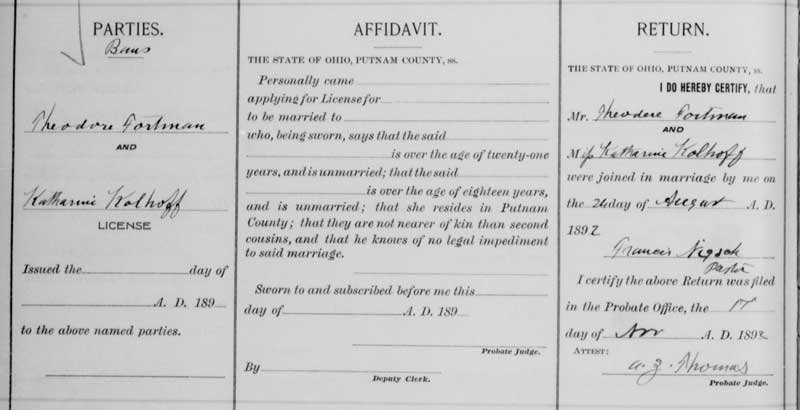 PARTIES.
Bans
Theodore Fortman
AND
Katharine Kolhoff
LICENSE
Issued the day of
A. D. 189
to the above named parties.
AFFIDAVIT.
THE STATE OF OHIO, PUTNAM COUNTY, ss.
Personally came
applying for License for
to be married to
who, being sworn, says that the said
is over the age of twenty-one
years, and is unmarried; that the said
is over the age of eighteen years,
and is unmarried; that she resides in Putnam
County; that they are not nearer of kin than second
cousins, and that he knows of no legal impediment
to said marriage.
Sworn to and subscribed before me this
day of A. D. 189
Probate Judge.
By
Deputy Clerk.
RETURN.
THE STATE OF OHIO, PUTNAM COUNTY, ss.
I DO HEREBY CERTIFY, that
Mr. Theodore Fortman
AND
Miss Katharine Kolhoff
were joined in marriage by me on
the day of August A. D.
1892
Francis
Pastor
I certify the above Return was filed
in the Probate Office, the 17
day of Nov A. D. 1892
ATTEST:
A. Z. Thomas
Probate Judge.